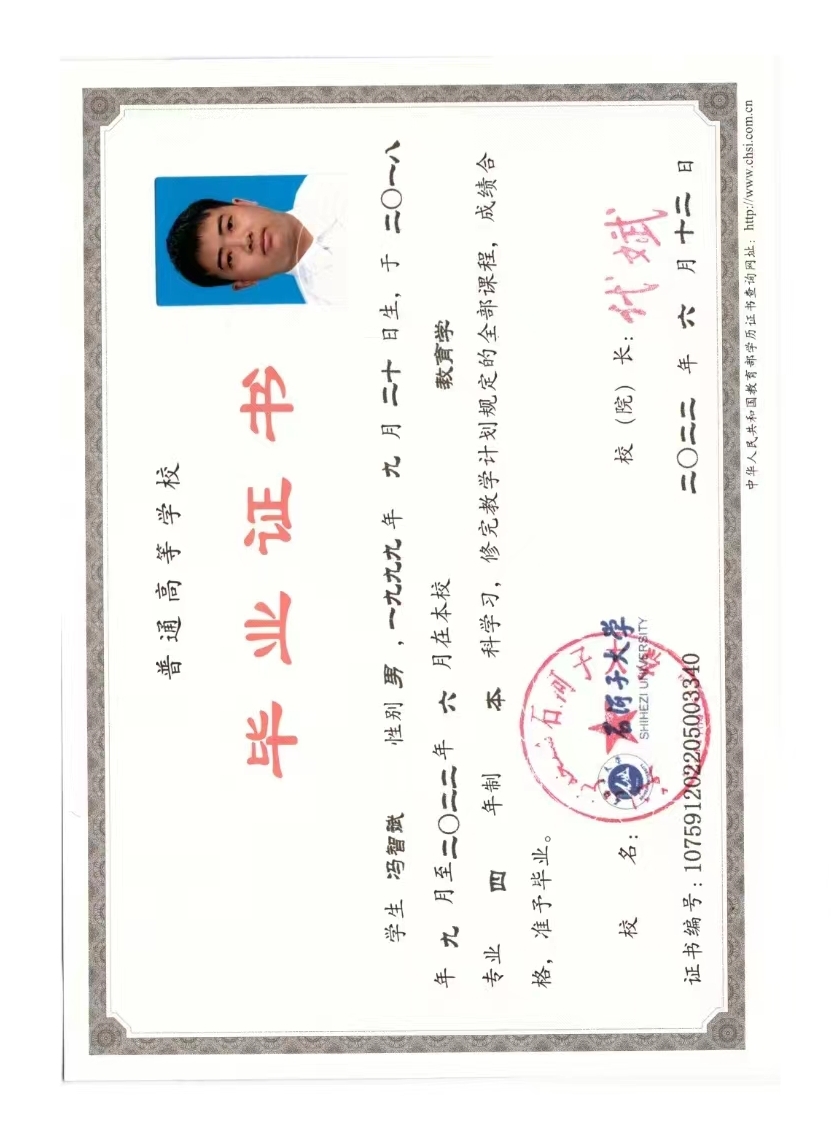 普通高等学校
毕业证书
学生 冯智斌 性别 男 ,一九九九年 九 月 二十 日生，于 二〇一八
年 九 月至二〇二二年 六 月在本校 教育学
专业 四 年制 本 科学习，修完教学计划规定的全部课程，成绩合
格，准予毕业。
校 名： 石河子大学
SHIHEZI UNIVERSITY
石河子
校（院）长：代斌
证书编号：107591202205003340
二〇二二 年 六 月 十二 日
中华人民共和国教育部学历证书查询网址：http://www.chsi.com.cn